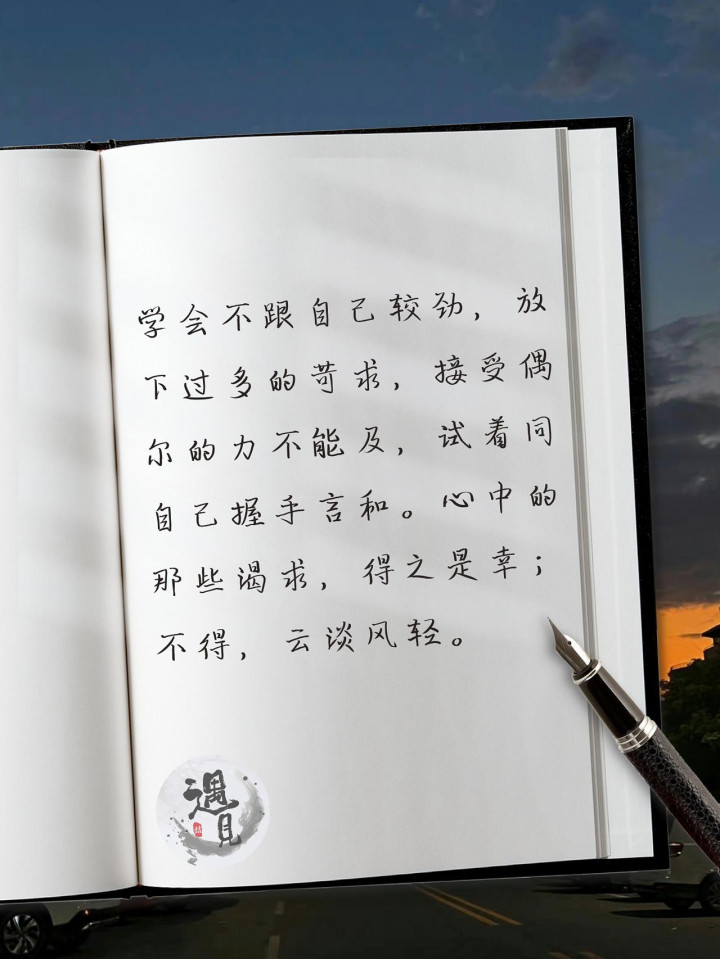 学会不跟自己较劲，放
下过多的苛求，接受偶
尔的力不能及，试着同
自己握手言和。心中的
那些渴求，得之是幸；
不得，云谈风轻。
遇見